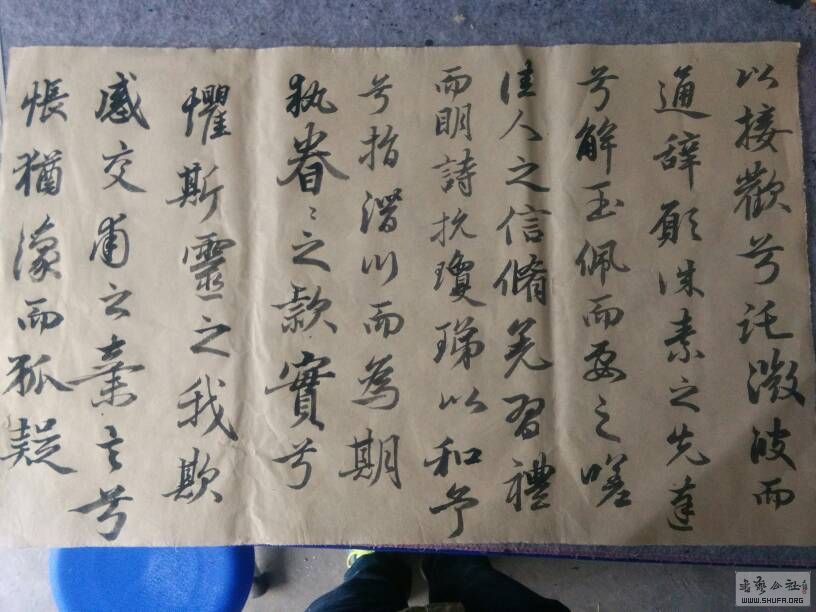 以接歡兮託微波而
通辭願誠素之先達
兮解玉佩而要之嗟
佳人之信脩羌習禮
而明詩抗瓊珶以和予
兮指潛川而為期
執眷〻之款實兮
懼斯靈之我欺
感交甫之棄言兮
悵猶豫而狐疑
書藝公社
WWW.SHUFA.ORG